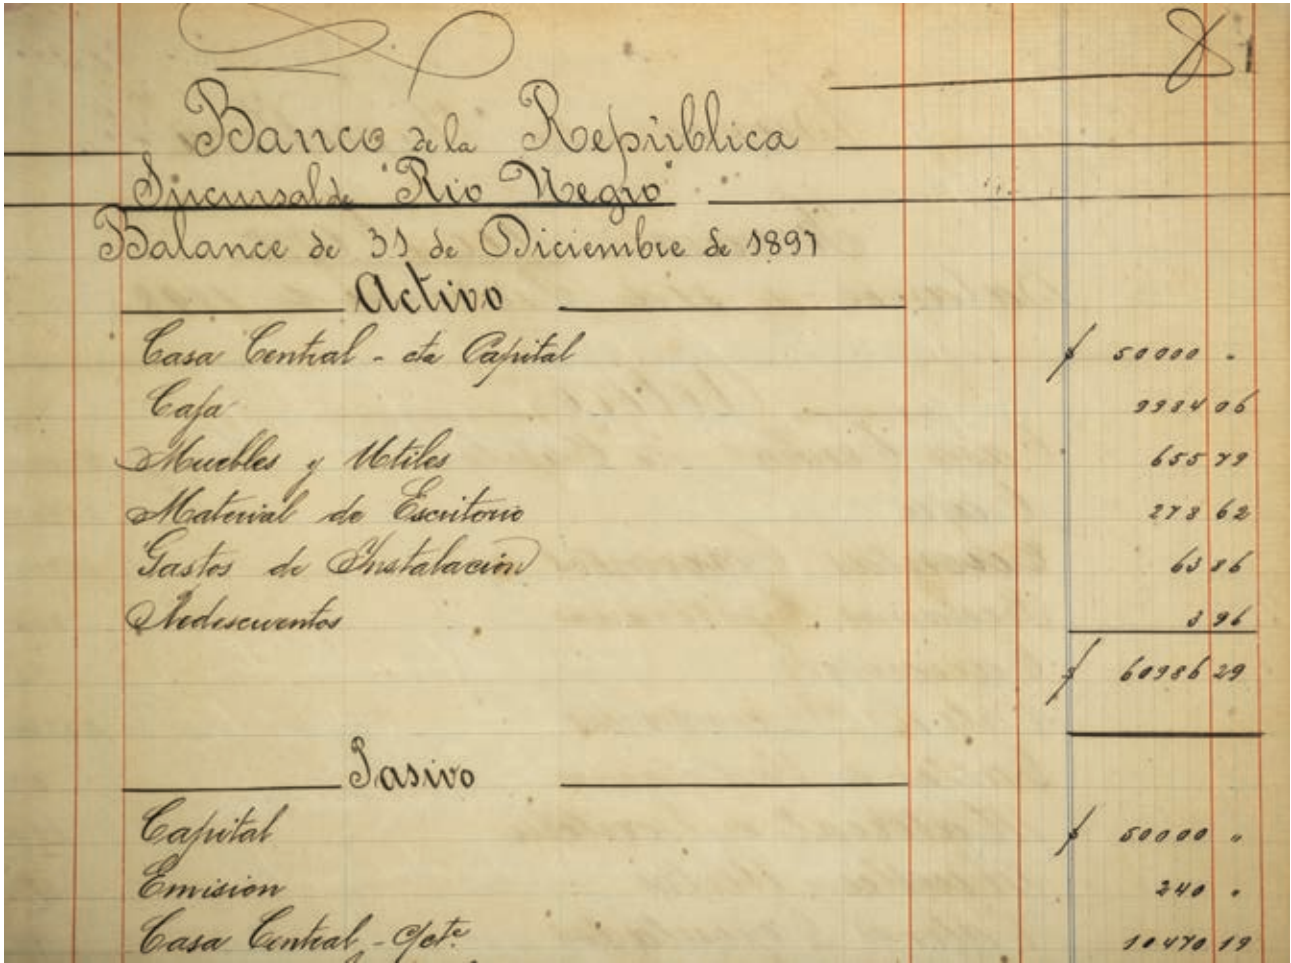 Banco de la República
Sucursal de "Rio Negro"
Balance de 31 de Diciembre de 1897
Activo
Casa Central - cta Capital $ 50000 "
Caja 9984 06
Muebles y Utiles 655 79
Material de Escritorio 278 62
Gastos de Instalación 63 86
Redescuentos 3 96
$ 60986 29
Pasivo
Capital $ 50000 "
Emision 240 "
Casa Central - c/cte. 10470 19